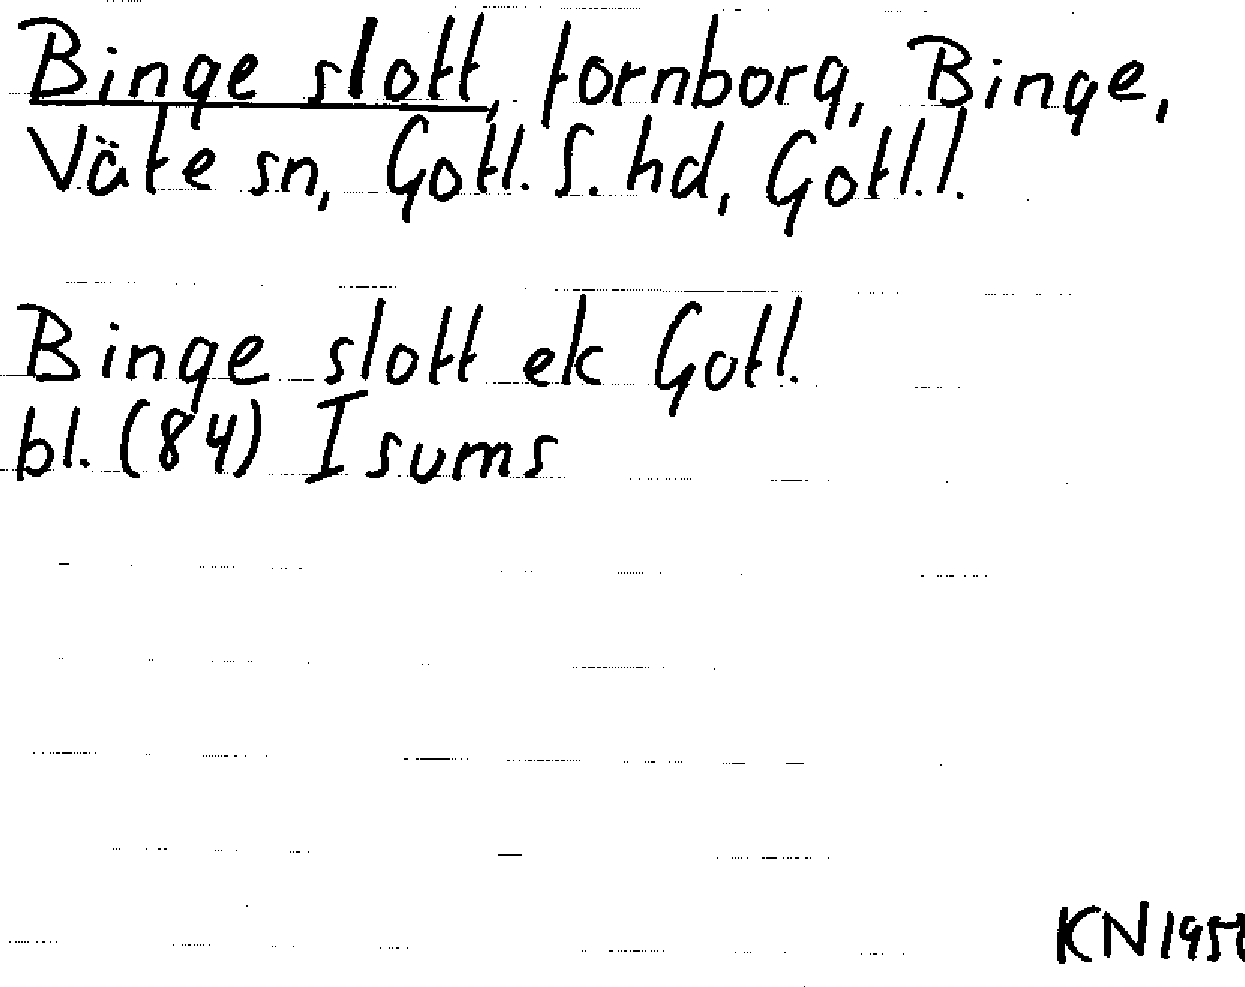 Binge slott, fornborg, Binge,
Väte sn, Gotl. S. hd, Gotl. l.
Binge slott ek Gotl.
bl. (84) Isums
KN 1951